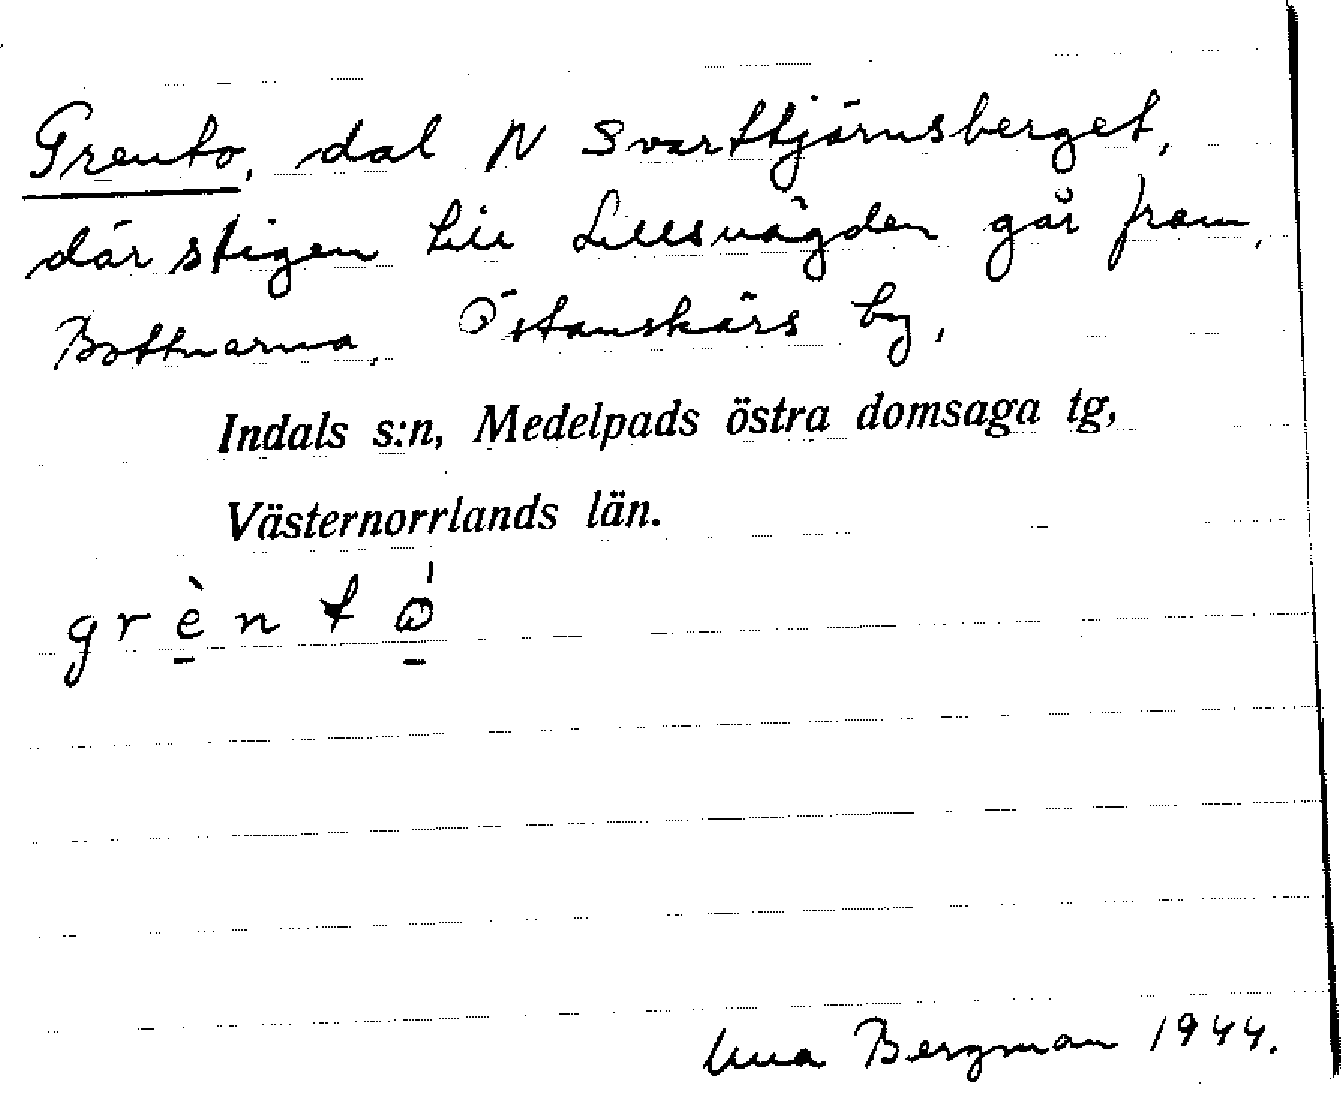 Grento, dal N Svarttjärnsberget,
där stigen till Lillsvägden går fram,
Bottnarna, Östanskärs by,
Indals s:n, Medelpads östra domsaga tg,
Västernorrlands län.
grèntω̍
Una Bergman 1944.